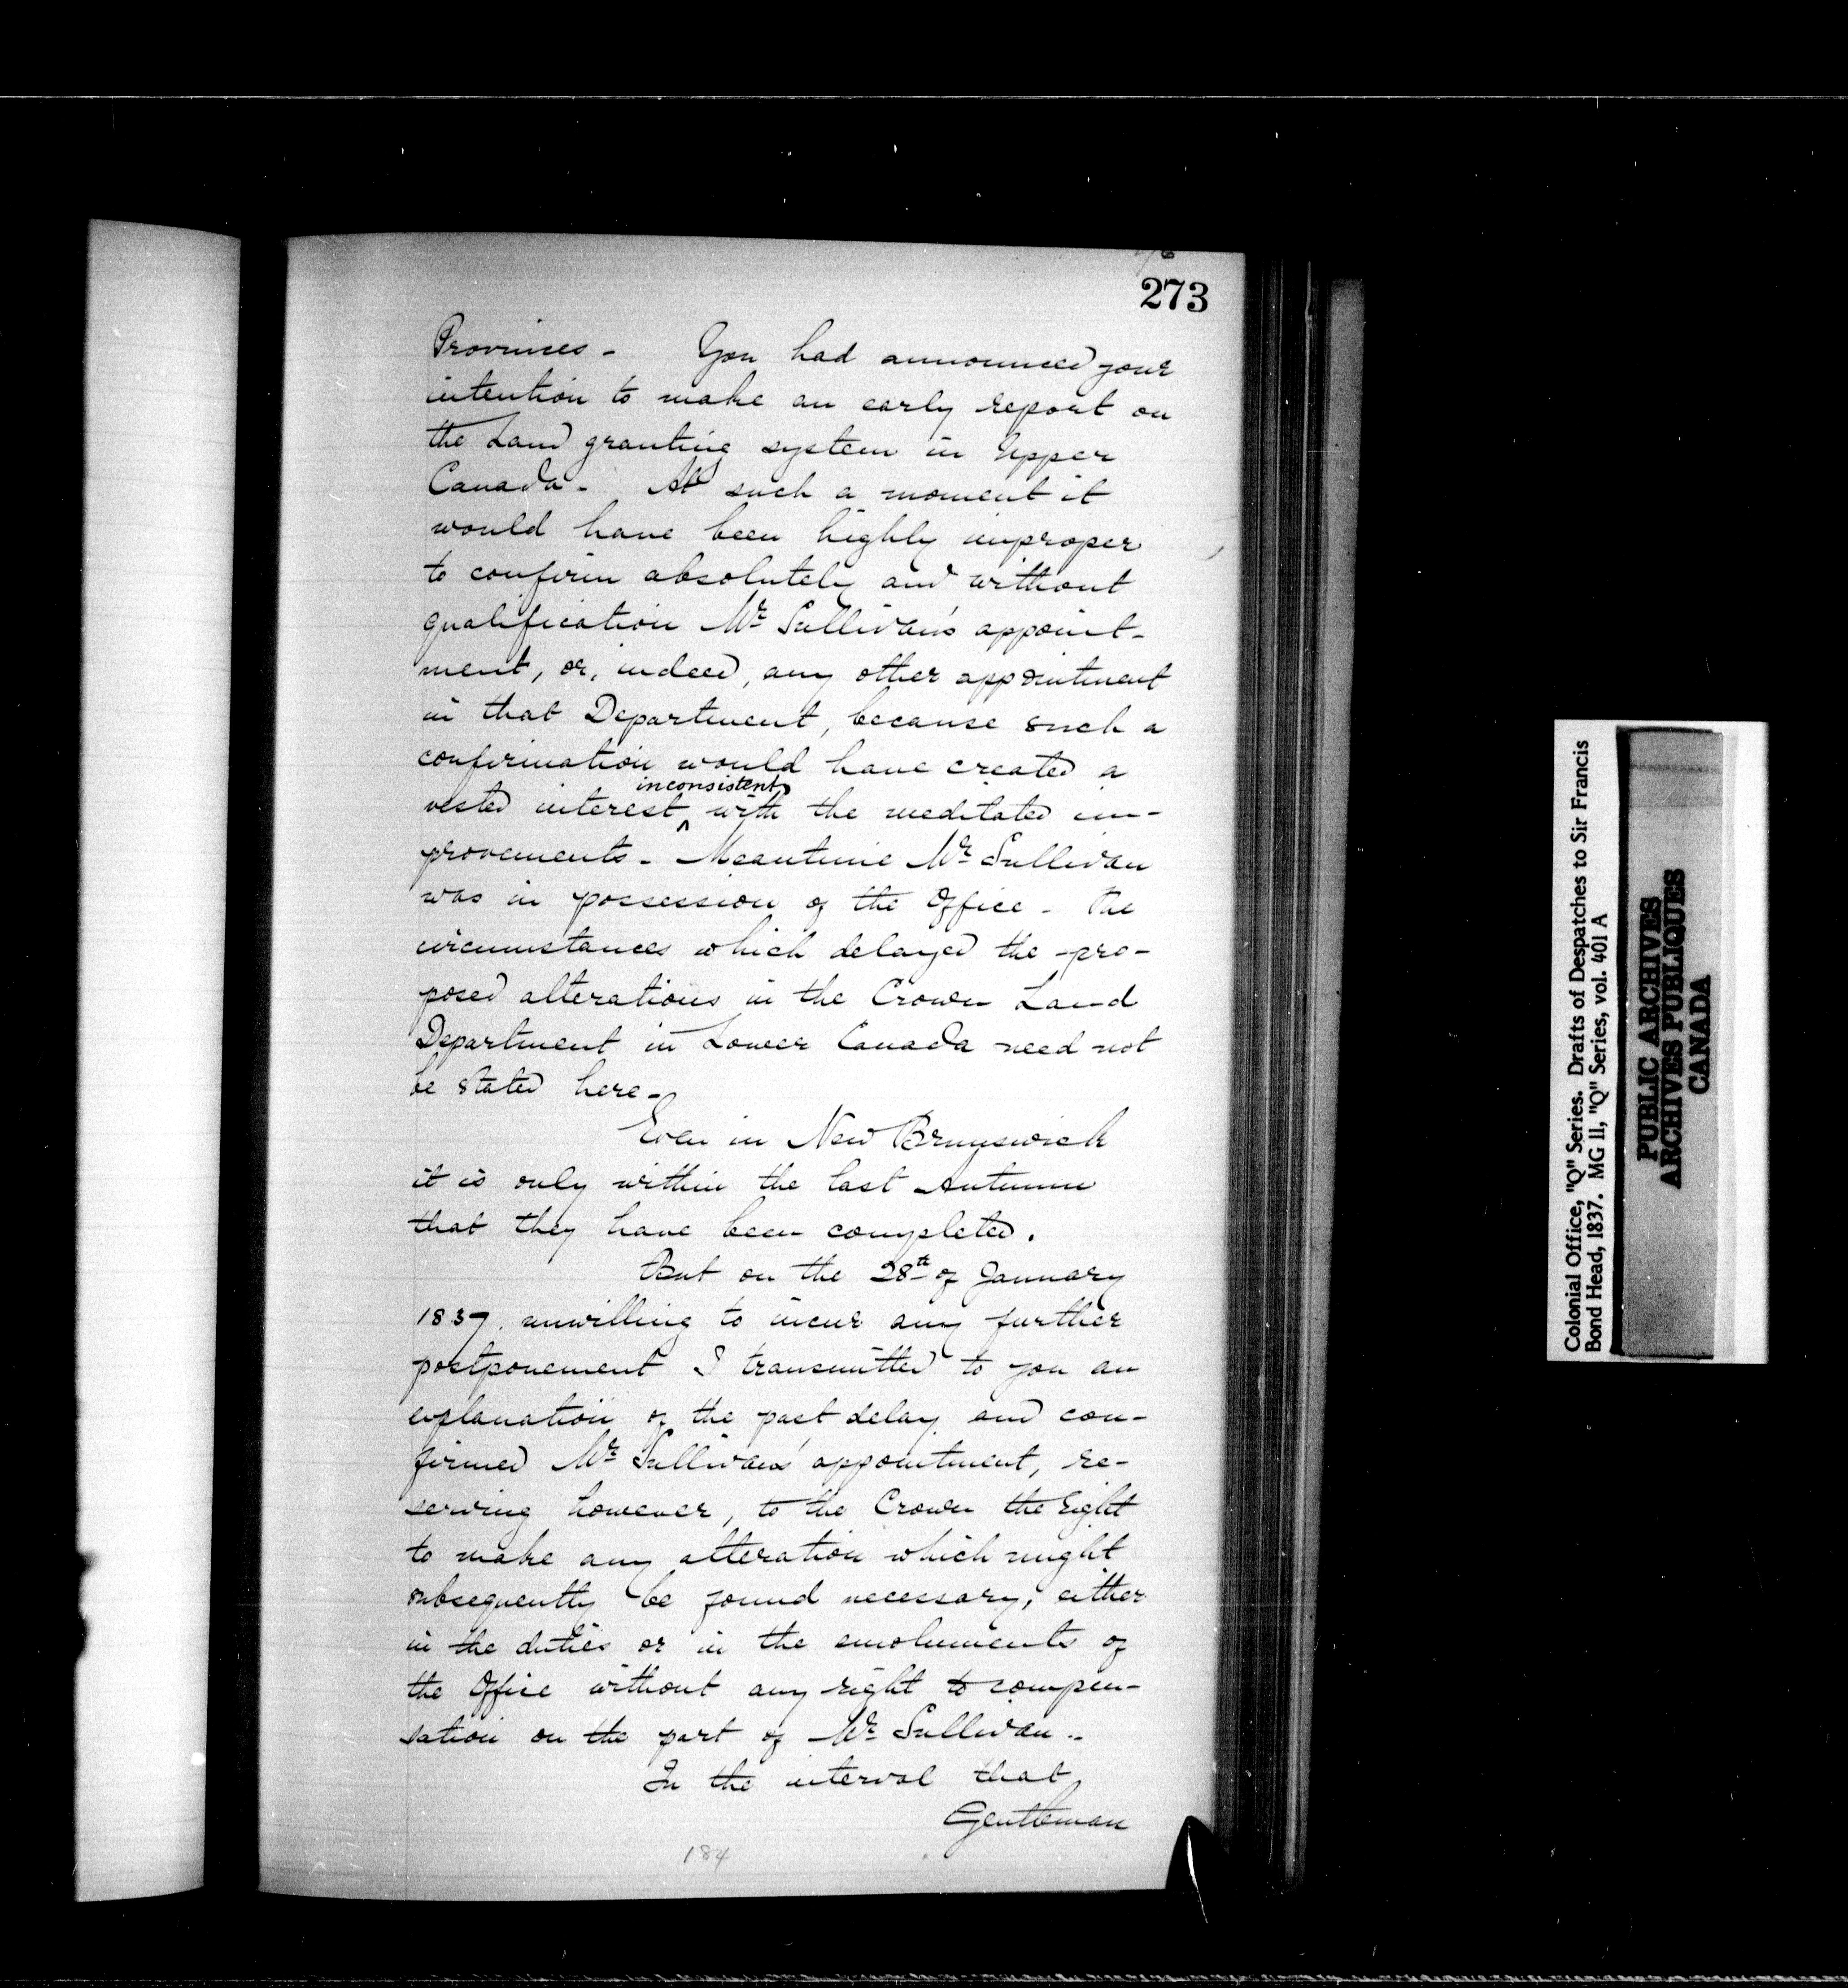 273
Provinces - You had announced your
intention to make an early report on
the Land granting system in Upper
Canada - At such a moment it
would have been highly improper
to confirm absolutely and without
qualification Mr Sullivan's appoint-
ment, or, indeed, any other appointment
in that Department, because such a
confirmation would have created a
inconsistent
vested interest ^ with the meditated im-
provements - Meantime Mr Sullivan
was in possession of the Office - The
circumstances which delayed the pro-
posed alterations in the Crown Land
Department in Lower Canada need not
be stated here -
Even in New Brunswick
it is only within the last Autumn
that they have been completed.
But on the 28th of January
1837, unwilling to incur any further
postponement I transmitted to you an
explanation of the past delay and con-
firmed Mr Sullivan's appointment, re-
serving however, to the Crown the right
to make any alteration which might
subsequently be found necessary, either
in the duties or in the emoluments of
the Office without any right to compen-
sation on the part of Mr Sullivan -
In the interval that
Gentleman
184
Colonial Office, "Q" Series. Drafts of Despatches to Sir Francis
Bond Head, 1837. MG 11, "Q" Series, vol. 401 A
PUBLIC ARCHIVES
ARCHIVES PUBLIQUES
CANADA